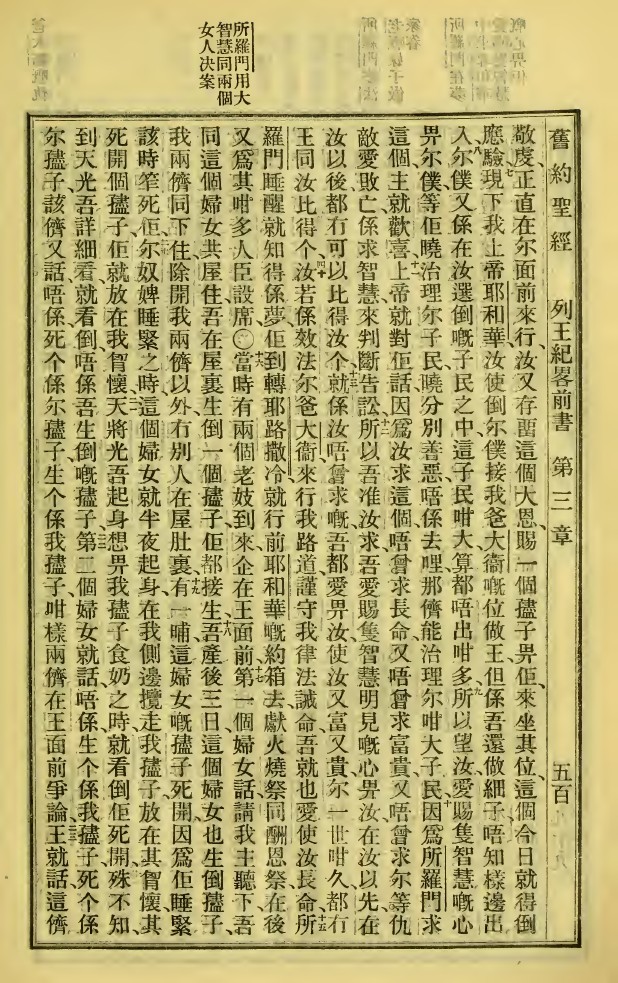 舊約聖經 列王紀畧前書 第三章 五百
所羅門用大
智慧同兩個
女人决案
敬虔正直在尔面前來行汝又存畱這個大恩賜一個孻子畀佢來坐其位這個今日就得倒
應驗七現下我上帝耶和華汝使倒尔僕接我爸大衞嘅位做王但係吾還做細子唔知樣邊出
入八尔僕又係在汝選倒嘅子民之中這子民咁大算都唔出咁多九所以望汝愛賜隻智慧嘅心
畀尔僕等佢曉治理尔子民曉分別善惡唔係去哩那儕能治理尔咁大子民十因爲所羅門求
這個主就歡喜十一上帝就對佢話因爲汝求這個唔曾求長命又唔曾求富貴又唔曾求尔等仇
敵愛敗亡係求智慧來判斷告訟十二所以吾准汝求吾愛賜隻智慧明見嘅心畀汝在汝以先在
汝以後都冇可以比得汝个十三就係汝唔曾求嘅吾都愛畀汝使汝又富又貴尔一世咁久都冇
王同汝比得个十四汝若係效法尔爸大衞來行我路道謹守我律法誡命吾就也愛使汝長命十五所
羅門睡醒就知得係夢佢到轉耶路撒冷就行前耶和華嘅約箱去獻火燒祭同酬恩祭在後
又爲其咁多人臣設席〇十六當時有兩個老妓到來企在王面前十七第一個婦女話請我主聽下吾
同這個婦女共屋住吾在屋裏生倒一個孻子佢都接生十八吾產後三日這個婦女也生倒孻子
我兩儕同下住除開我兩儕以外冇別人在屋肚裏十九有一晡這婦女嘅孻子死開因爲佢睡緊
該時笮死佢二十尔奴婢睡緊之時這個婦女就半夜起身在我側邊攬走我孻子放在其胷懷其
死開個孻子佢就放在我胷懷二一天將光吾起身想畀我孻子食奶之時就看倒佢死開殊不知
到天光吾詳細看就看倒唔係吾生倒嘅孻子二二第二個婦女就話唔係生个係我孻子死个係
尔孻子該儕又話唔係死个係尔孻子生个係我孻子咁樣兩儕在王面前爭論二三王就話這儕